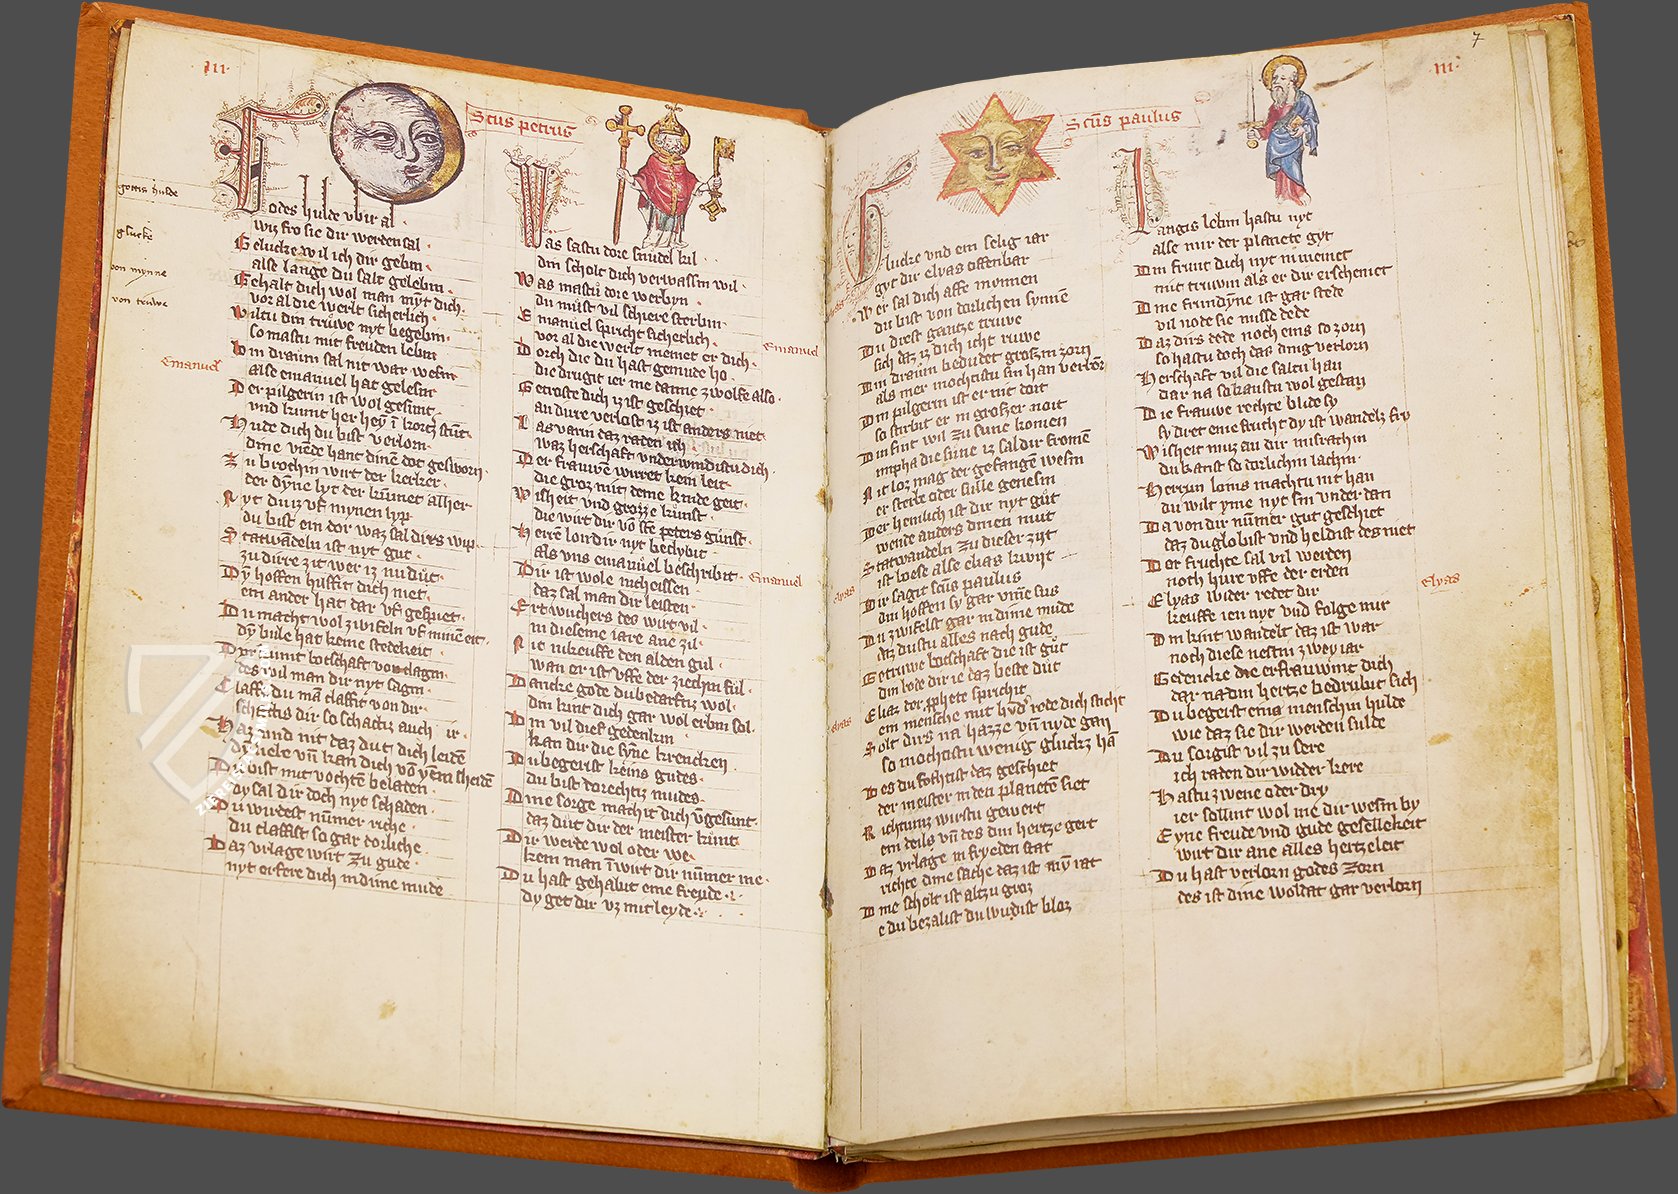 ·III·
Scūs petrus
gottis hulde
Godes hulde wir al
wiz fro sie dir werden sal ·
glucke
Gelucke wil ich dir gebin ·
alse lange du salt gelebin ·
von mynne
Gehalt dich wol man myt dich ·
vor al die werlt sicherlich ·
von truwe
Wiltu din truwe nyt begebin ·
so mastu mit freuden lebin
Emanuel
Din draum sal nit war wesin
alse emanuel hat gelesin
Der pilgerin ist wol gesunt ·
vnd kumt her hey ī korcz stūt ·
Hude dich du bist verlorn ·
dine viēde hant dinē dot gesworn ·
Zu brochin wirt der kerker ·
der dyne lyt der kumet alher
Nyt duiz vf mynen lyp
du bist ein dor waz sal dirs wip
Statwādeln ist nyt gut ·
zu dirre zit wer iz nu dut ·
Dy hoffen hilffit dich niet ·
ein ander hat dar vf gespiet ·
Du macht wol zwifeln vf minnē eit ·
dy bule hat keine stedekeit
Dir kumt botschaft von clagin
des wil man dir nyt sagin
Claffe du mā claffit von dir
schattis dir so schatiz auch ir ·
Haz vnd nit daz dut dich leidē
Du bist mit vochtē beladen ·
dy sal dir doch nyt schaden ·
Du wirdest nūmer riche ·
du claffist so gar dorliche ·
Daz vrlage wirt zu gude ·
nyt erfere dich in dime mude
Was sastu dore snudel kil ·
din scholt dich verwassin wil ·
Was mastu dore werbyn ·
du must vil schiere sterbin ·
Emanuel spricht sicherlich ·
vor al die werlt meinet er dich ·
Emanuel
Dorch die du hast gemude ho ·
die drugit ier me danne zwolfe also ·
Getroste dich iz ist geschiet ·
an dure verlost iz ist anders niet ·
Las varin daz raden ich
waz herschaft vnderwindistu dich ·
Der frauwē wirret kein leit ·
die groz mit deme kinde geit ·
Wisheit vnd grozze kunst ·
die wirt dir vō sc̄e peters gunst ·
Herre lon dir nyt beclybit ·
als vns emanuel beschribit · Emanuel
Dir ist wole incheissen ·
daz sal man dir leisten ·
Ert wuchers des wirt vil ·
in dieseme iare ane zil ·
Nie inkeuffe den alden gul ·
wan er ist vffe der ziechin ful ·
Dancke gode du bedarftiz wol ·
din kint dich gar wol erbin sol ·
Din vil dief gedenkin
kan dir die syne krencken
Du begerist keins gudes ·
du bist dorechtiz mudes ·
Dine sorge machit dich vngesunt ·
daz dut dir der meister kunt ·
Dir werde wol oder we ·
kein man ī wirt dir nūmer me ·
Du hast gehabit eine freude ·
dy get dir vz mit leyde ·
7
·III·
Scūs paulus
Glucke vnd ein selig iar
gyt dir elyas offenbar
Wer sal dich affe mynnen
du bist von dorlichen synnē
Du diest gantze truwe
sich daz iz dich icht ruwe
Din draum bedudet groszin zorn
als mer mochtistu sin han verlorn
Din pilgerin ist er nit doit
so stirbit er in groszer noit
Din fint wil zu sune komen
inpha die sune iz sal dir fromē
Nit loz mag der gefangē wesin
er sterbe oder sulle genesin
Der heinlich ist dir nyt gut
wende anders dinen mut
Statwandeln zu dieser zyt
ist boese alse elias kwyt
elyas
Dir sagit scūs paulus
din hoffen sy gar vm̄e sus
Du zwifelst gar in dime mude
daz dustu alles nach gude
Getruwe botschaft die ist gut
din bode dir ie daz beste dut
Elias der pphete sprichit
ein mensche mit hūdis rede dich sticht
elyas
Solt dirs na hazze vn̄ nyde gan
so mochtistu wenig gluckz hā
Des du fochtist daz geschiet
der meister in den planetē siet
Richtum wirstu gewert
ein deils vn̄ des din hertze gert
Daz vrlage in fryeden stat
richte dine sache daz ist myn rat
Dine scholt ist altzu groz
e du bezalist du wirdist bloz
Langis lebin hastu nyt
alse mir der planete gyt
Din frunt dich nyt in meinet
mit truwin als er dir erscheinet
Dine frundynne ist gar stede
vil node sie misse dede
Daz dirs dede noch eins so zorn
so hastu doch das ding verlorn
Herschaft vil die saltu han
dar na so kanstu wol gestan
Die frauwe rechte blide sy
sy dret eine frucht dy ist wandelz fry
Wisheit muz an dir misrathin
du kanst so dorlichin lachin ·
Herryn lonis machtu nit han
du wilt yme nyt sin vnder dan
Da von dir nūmer gut geschiet
daz du globist vnd heldist des niet
Der fruchte sal vil werden
noch hure vffe der erden
Elyas
Elyas wider redet dir
keuffe ien nyt vnd folge mir
Din kint wandelt daz ist war
noch diese nestin zwey iar
Gedencke die erfrauwint dich
dar na din hertze bedrubit sich
Du begerst eins menschin hulde
wie daz sie dir werden sulde
Du sorgist vil zu sere
ich raden dir widder kere
Hastu zwene oder dry
ier sollint wol me dir wesin by
Eyne freude vnd gude gesellekeit
wirt dir ane alles hertzeleit
Du hast verlorn godes zorn
des ist dine woldat gar verlorn